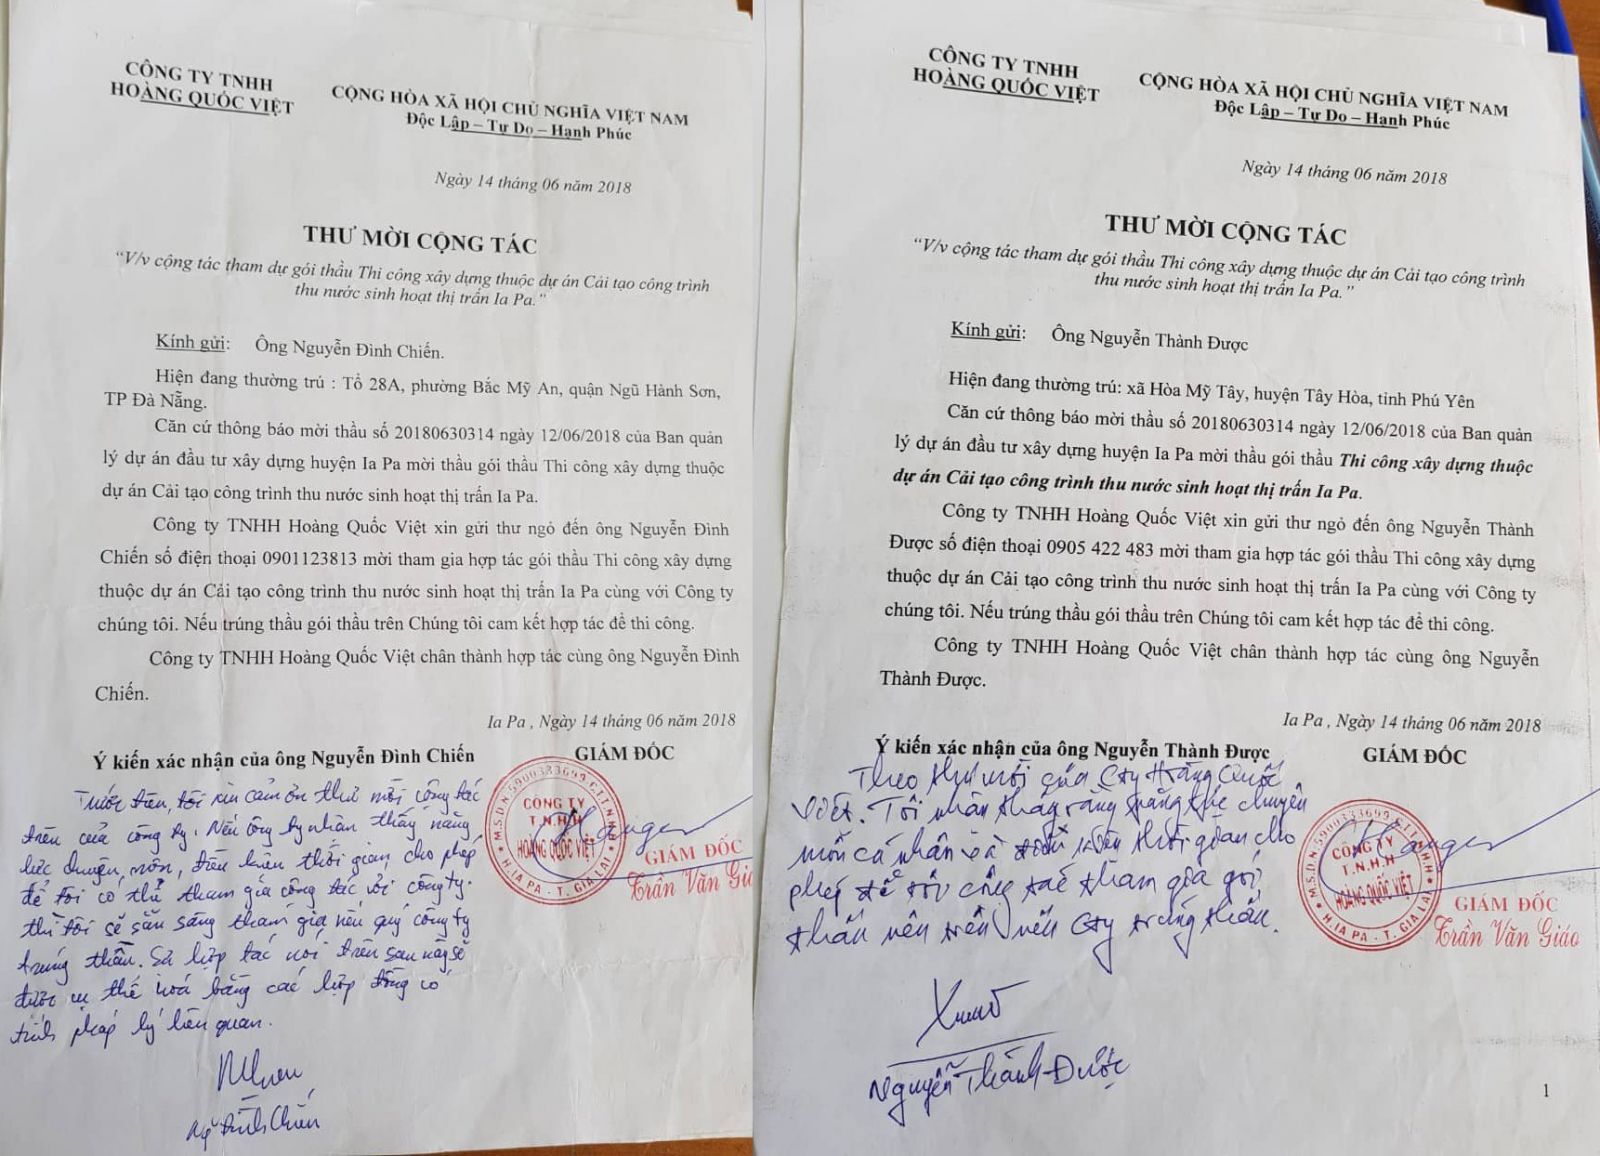 CÔNG TY TNHH
HOÀNG QUỐC VIỆT
CỘNG HÒA XÃ HỘI CHỦ NGHĨA VIỆT NAM
Độc Lập – Tự Do – Hạnh Phúc
Ngày 14 tháng 06 năm 2018
THƯ MỜI CỘNG TÁC
“V/v cộng tác tham dự gói thầu Thi công xây dựng thuộc dự án Cải tạo công trình
thu nước sinh hoạt thị trấn Ia Pa.”
Kính gửi: Ông Nguyễn Đình Chiến.
Hiện đang thường trú : Tổ 28A, phường Bắc Mỹ An, quận Ngũ Hành Sơn,
TP Đà Nẵng.
Căn cứ thông báo mời thầu số 20180630314 ngày 12/06/2018 của Ban quản
lý dự án đầu tư xây dựng huyện Ia Pa mời thầu gói thầu Thi công xây dựng thuộc
dự án Cải tạo công trình thu nước sinh hoạt thị trấn Ia Pa.
Công ty TNHH Hoàng Quốc Việt xin gửi thư ngỏ đến ông Nguyễn Đình
Chiến số điện thoại 0901123813 mời tham gia hợp tác gói thầu Thi công xây dựng
thuộc dự án Cải tạo công trình thu nước sinh hoạt thị trấn Ia Pa cùng với Công ty
chúng tôi. Nếu trúng thầu gói thầu trên Chúng tôi cam kết hợp tác để thi công.
Công ty TNHH Hoàng Quốc Việt chân thành hợp tác cùng ông Nguyễn Đình
Chiến.
Ia Pa , Ngày 14 tháng 06 năm 2018
Ý kiến xác nhận của ông Nguyễn Đình Chiến
GIÁM ĐỐC
Trước tiên, tôi xin cảm ơn thư mời cộng tác
trên của công ty. Nếu công ty nhận thấy năng
lực chuyên môn, điều kiện thời gian cho phép
để tôi có thể tham gia công tác với công ty.
thì tôi sẽ sẵn sàng tham gia nếu quý công ty
trúng thầu. Sự hợp tác nói trên sau này sẽ
được cụ thể hoá bằng các hợp đồng có
tính pháp lý liên quan.
Ng Đình Chiến
M.S.D.N:5900383699.C.T.T.N.H.H
CÔNG TY
T.N.H.H
HOÀNG QUỐC VIỆT
H. IA PA - T. GIA LAI
GIÁM ĐỐC
Trần Văn Giá
CÔNG TY TNHH
HOÀNG QUỐC VIỆT
CỘNG HÒA XÃ HỘI CHỦ NGHĨA VIỆT NAM
Độc Lập – Tự Do – Hạnh Phúc
Ngày 14 tháng 06 năm 2018
THƯ MỜI CỘNG TÁC
“V/v cộng tác tham dự gói thầu Thi công xây dựng thuộc dự án Cải tạo công trình
thu nước sinh hoạt thị trấn Ia Pa.”
Kính gửi: Ông Nguyễn Thành Được
Hiện đang thường trú: xã Hòa Mỹ Tây, huyện Tây Hòa, tỉnh Phú Yên
Căn cứ thông báo mời thầu số 20180630314 ngày 12/06/2018 của Ban quản
lý dự án đầu tư xây dựng huyện Ia Pa mời thầu gói thầu Thi công xây dựng thuộc
dự án Cải tạo công trình thu nước sinh hoạt thị trấn Ia Pa.
Công ty TNHH Hoàng Quốc Việt xin gửi thư ngỏ đến ông Nguyễn Thành
Được số điện thoại 0905 422 483 mời tham gia hợp tác gói thầu Thi công xây dựng
thuộc dự án Cải tạo công trình thu nước sinh hoạt thị trấn Ia Pa cùng với Công ty
chúng tôi. Nếu trúng thầu gói thầu trên Chúng tôi cam kết hợp tác để thi công.
Công ty TNHH Hoàng Quốc Việt chân thành hợp tác cùng ông Nguyễn
Thành Được.
Ia Pa , Ngày 14 tháng 06 năm 2018
Ý kiến xác nhận của ông Nguyễn Thành Được
GIÁM ĐỐC
Theo thư mời của Cty Hoàng Quốc
Việt. Tôi nhận thấy rằng năng lực chuyên
môn cá nhân và điều kiện thời gian cho
phép để tôi công tác tham gia gói
thầu nêu trên nếu Cty trúng thầu.
Nguyễn Thành Được
M.S.D.N:5900383699.C.T.T.N.H.H
CÔNG TY
T.N.H.H
HOÀNG QUỐC VIỆT
H. IA PA - T. GIA LAI
GIÁM ĐỐC
Trần Văn Giáo
1